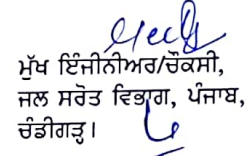 ਮੁੱਖ ਇੰਜੀਨੀਅਰ/ਚੌਕਸੀ,
ਜਲ ਸਰੋਤ ਵਿਭਾਗ, ਪੰਜਾਬ,
ਚੰਡੀਗੜ੍ਹ।